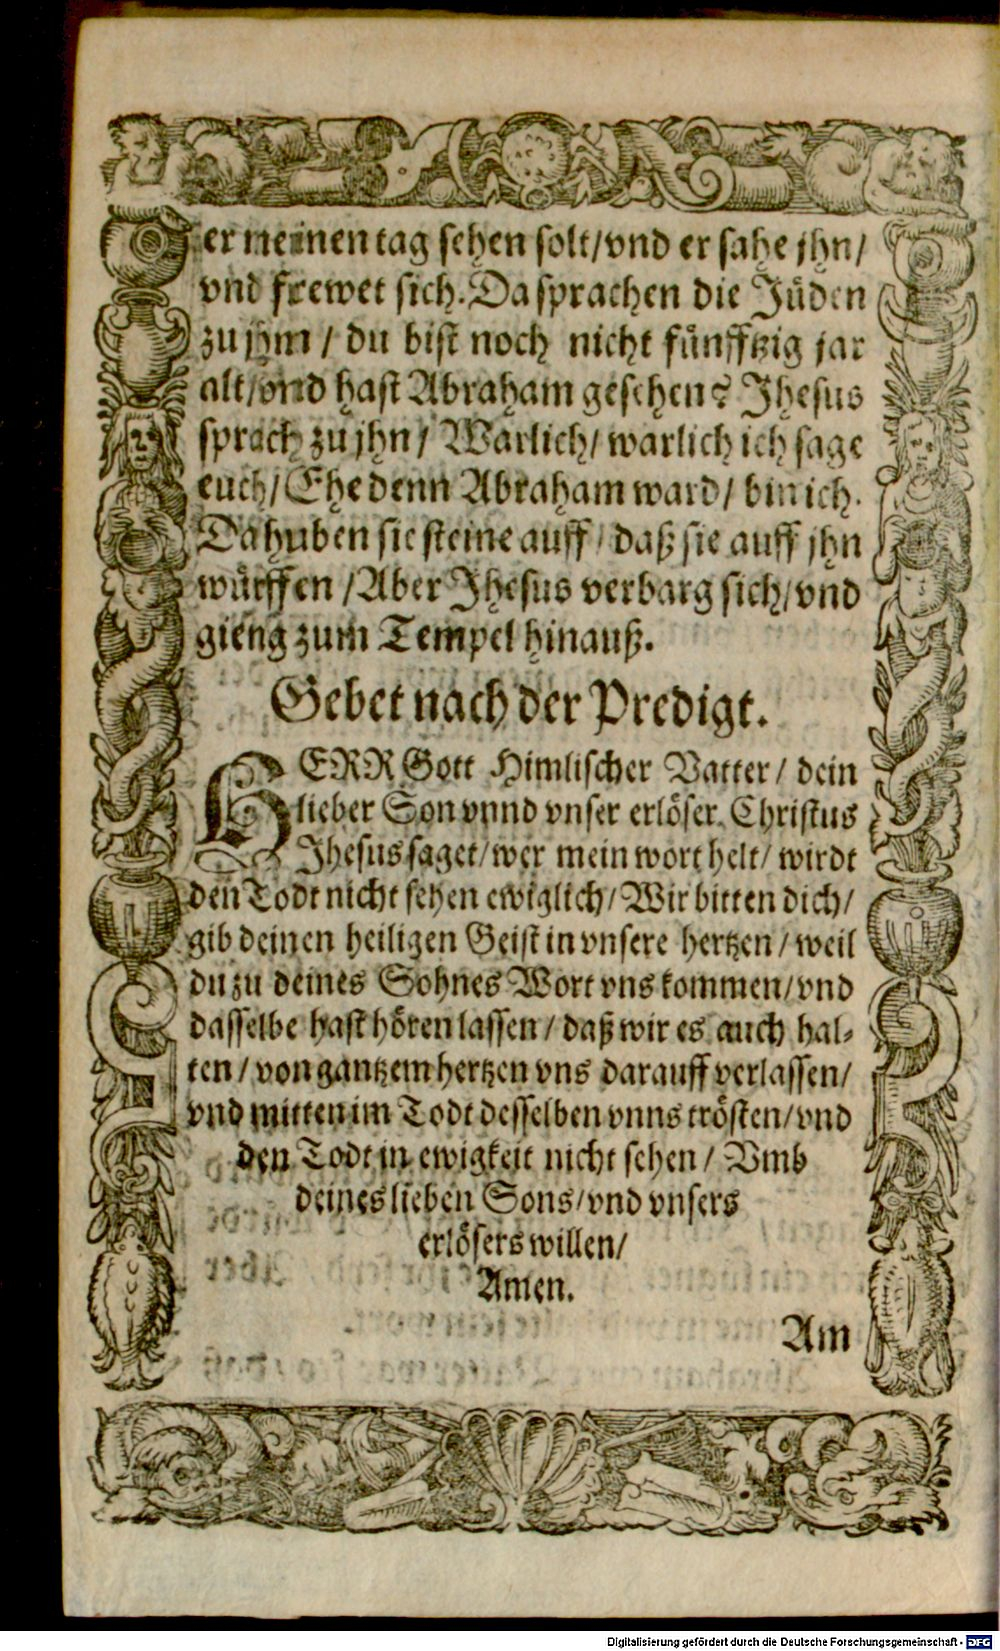 er meinen tag sehen solt/vnd er sahe jhn/
vnd frewet sich. Da sprachen die Jüden
zu jhm / du bist noch nicht fünfftzig jar
alt/vnd hast Abraham gesehen? Jhesus
sprach zu jhn/ Warlich/ warlich ich sage
euch/ Ehe denn Abraham ward/ bin ich.
Da huben sie steine auff/ daß sie auff jhn
würffen /Aber Jhesus verbarg sich/vnd
gieng zum Tempel hinauß.
Gebet nach der Predigt.
HERR Gott Himlischer Vatter/ dein
lieber Son vnnd vnser erlöser Christus
Jhesus saget/wer mein wort helt/ wirdt
den Todt nicht sehen ewiglich/Wir bitten dich/
gib deinen heiligen Geist in vnsere hertzen/weil
du zu deines Sohnes Wort vns kommen/vnd
dasselbe hast hören lassen/ daß wir es auch hal-
ten/von gantzem hertzen vns darauff verlassen/
vnd mitten im Todt desselben vnns trösten/vnd
den Todt in ewigkeit nicht sehen/ Vmb
deines lieben Sons/vnd vnsers
erlösers willen/
Amen.
Am
Digitalisierung gefördert durch die Deutsche Forschungsgemeinschaft - DFG